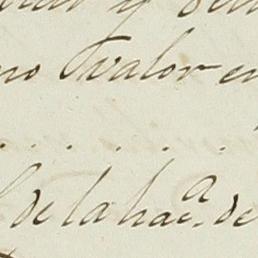 y
no valor en
. . . . . .
de la hac.ª de